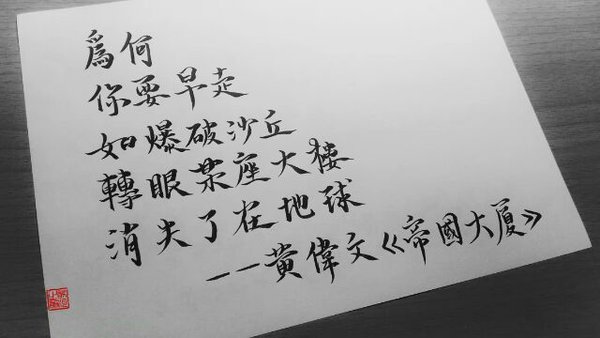 為何
你要早走
如爆破沙丘
轉眼某座大樓
消失了在地球
——黃偉文《帝國大厦》